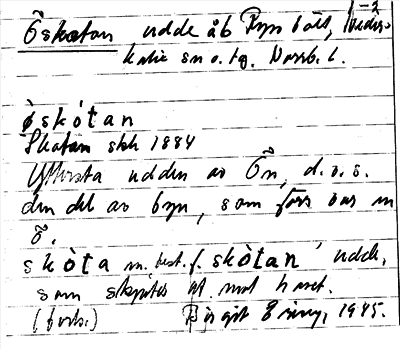 Öskatan udde åb Ryn båt, Neder-
kalix sn o. tg. Norrb. l.
òskòtan
Skatan skh 1884
Yttersta udden av Ön, d. v. s.
den del av byn, som förr var en
ö.
skòta m, best. f. skòtan, udde,
som skjuter ut mot havet.
(forts.) Birgit Eriny, 1945.